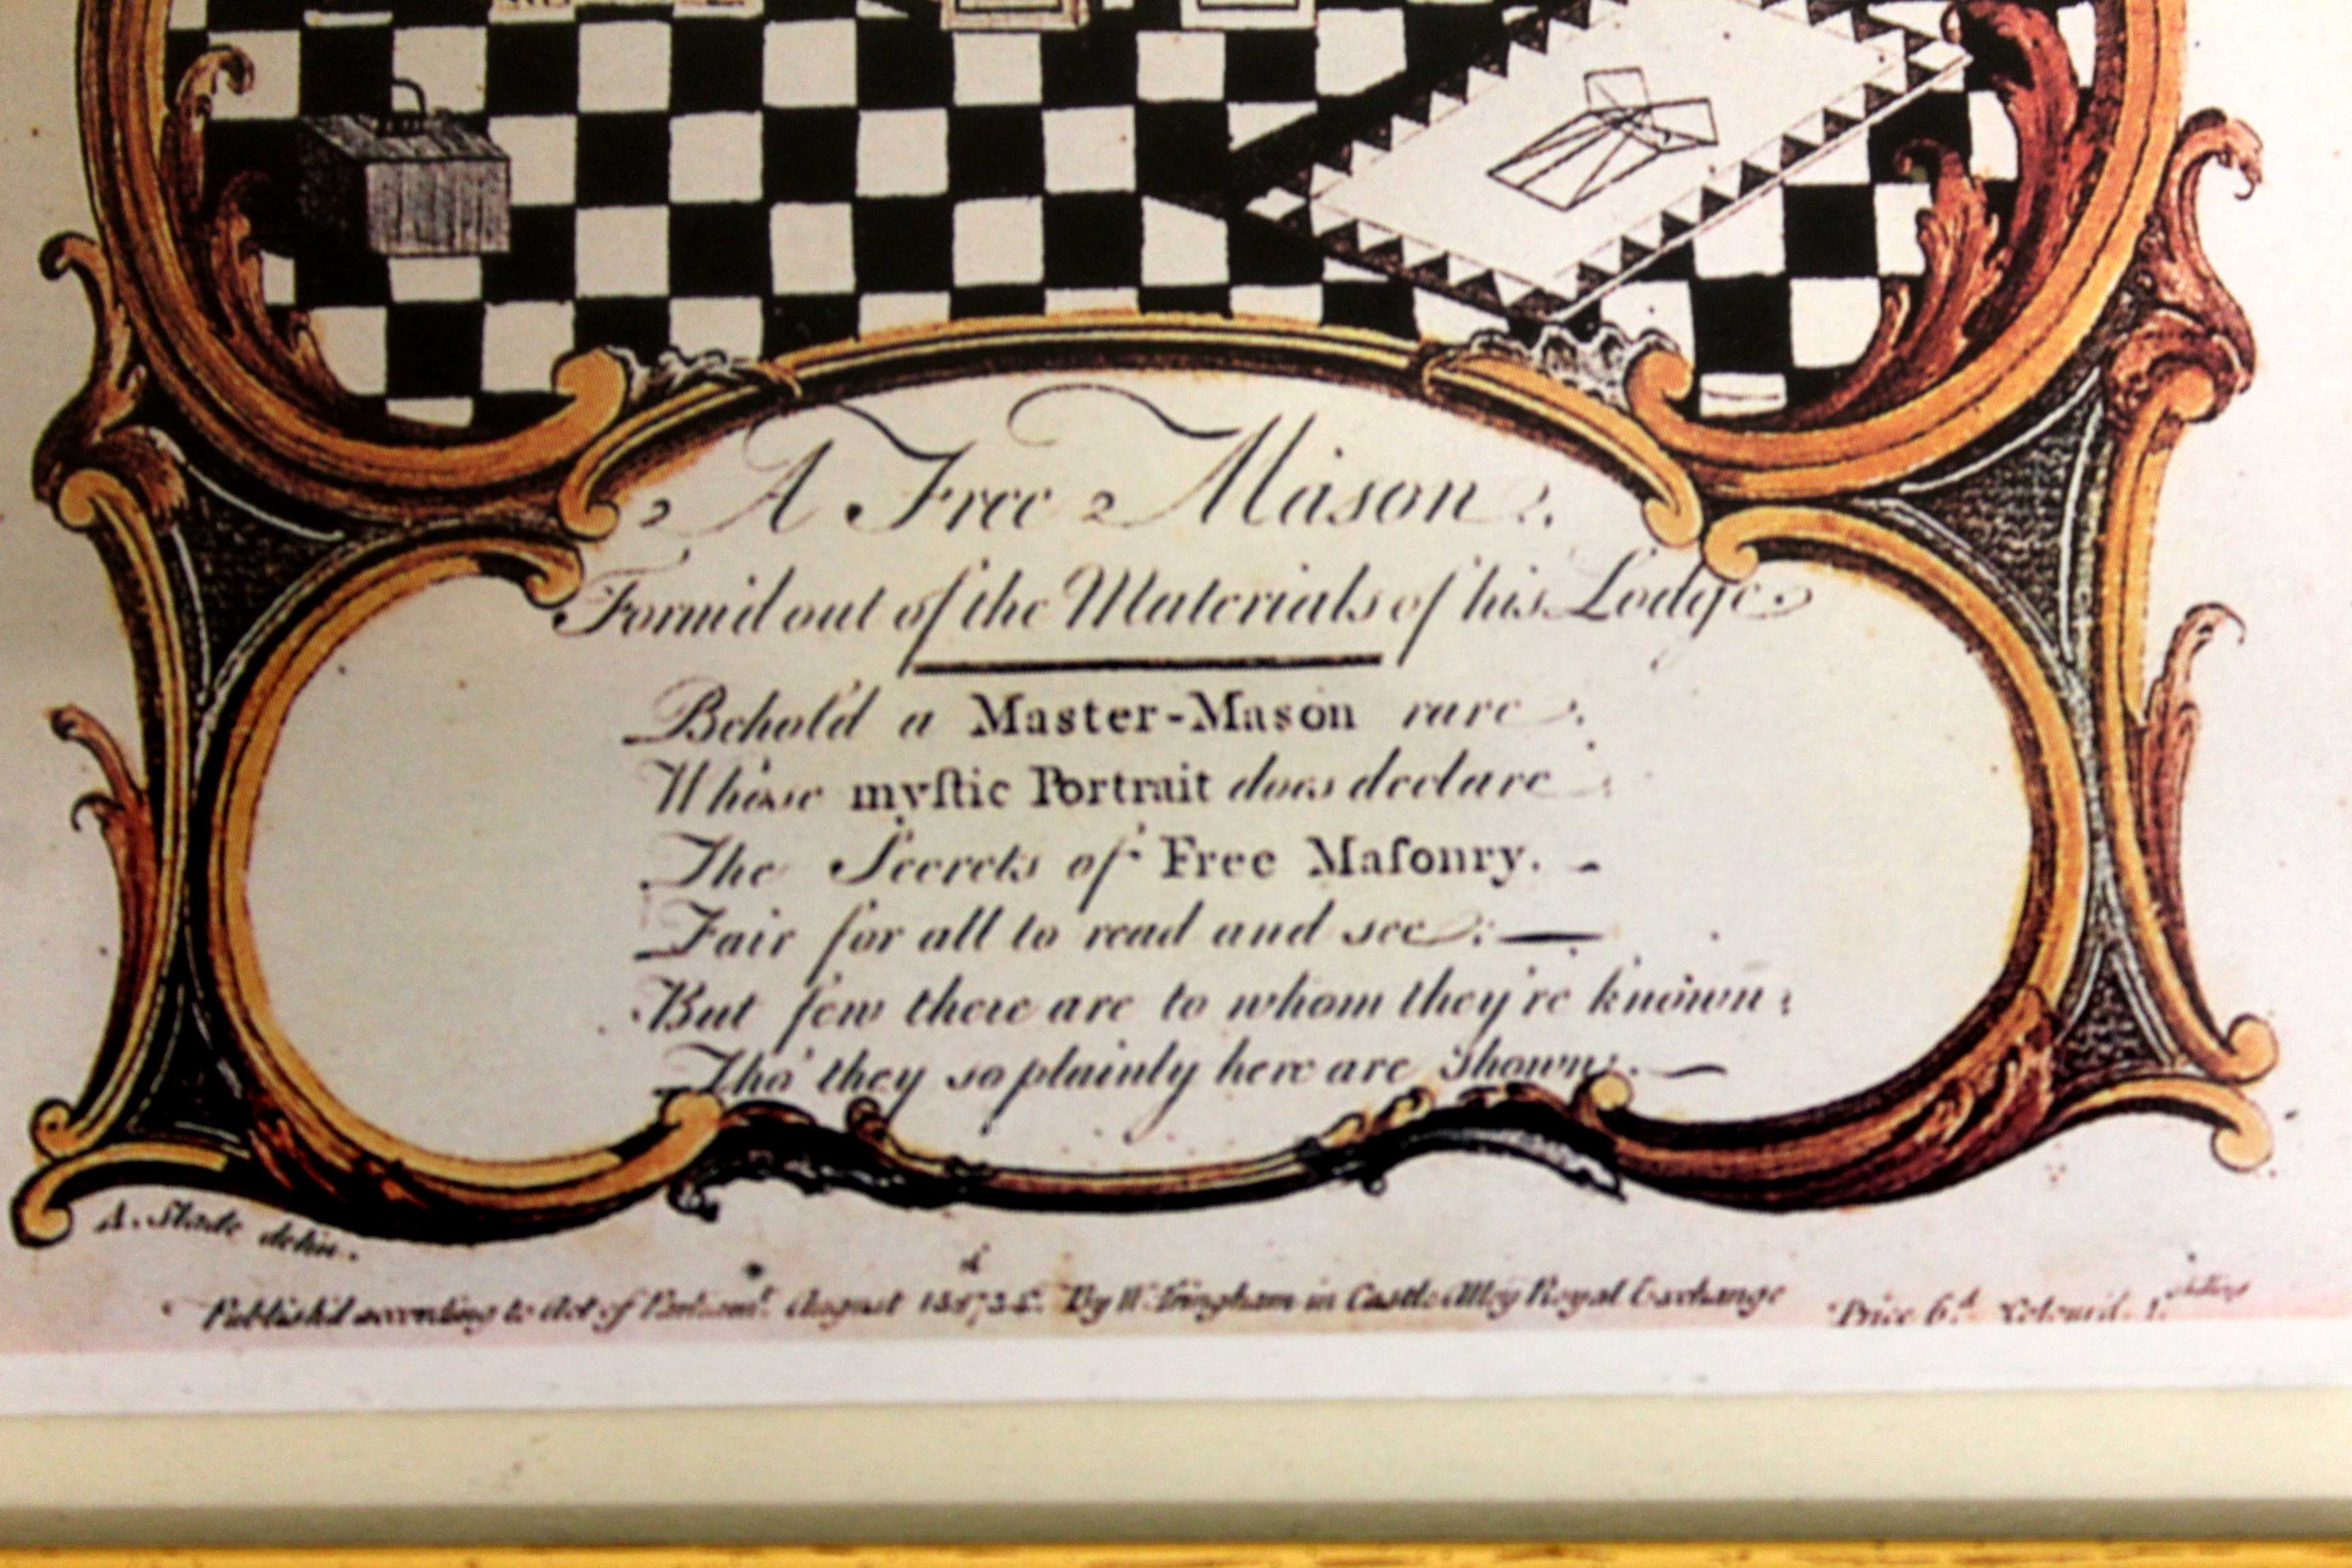 A Free Mason
Form'd out of the Materials of his Lodge.
Behold a Master-Mason rare
Whose myſtic Portrait does declare
The Secrets of Free Maſonry.
Fair for all to read and see: —
But few there are to whom they're known;
Tho' they so plainly here are Shown. —
A. Slade delin.
Publish'd according to Act of Parliamt. August By W. Tringham in Castle Alley Royal Exchange
Price 6d. Colour'd. 1 shilling